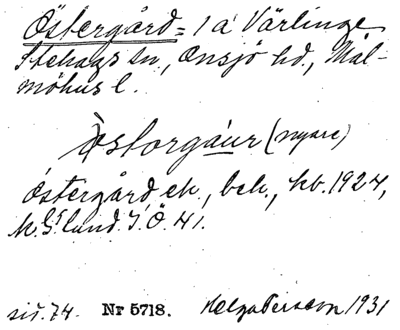 Östergård = 1 a Värlinge
Stehags sn., Onsjö hd., Mal-
möhus l.
Östorgáur (nyare)
Östergård ek., beb., kb. 1924,
lund. I. Ö. 41.
sid. 74. Nr 5718. Helga Persson 1931